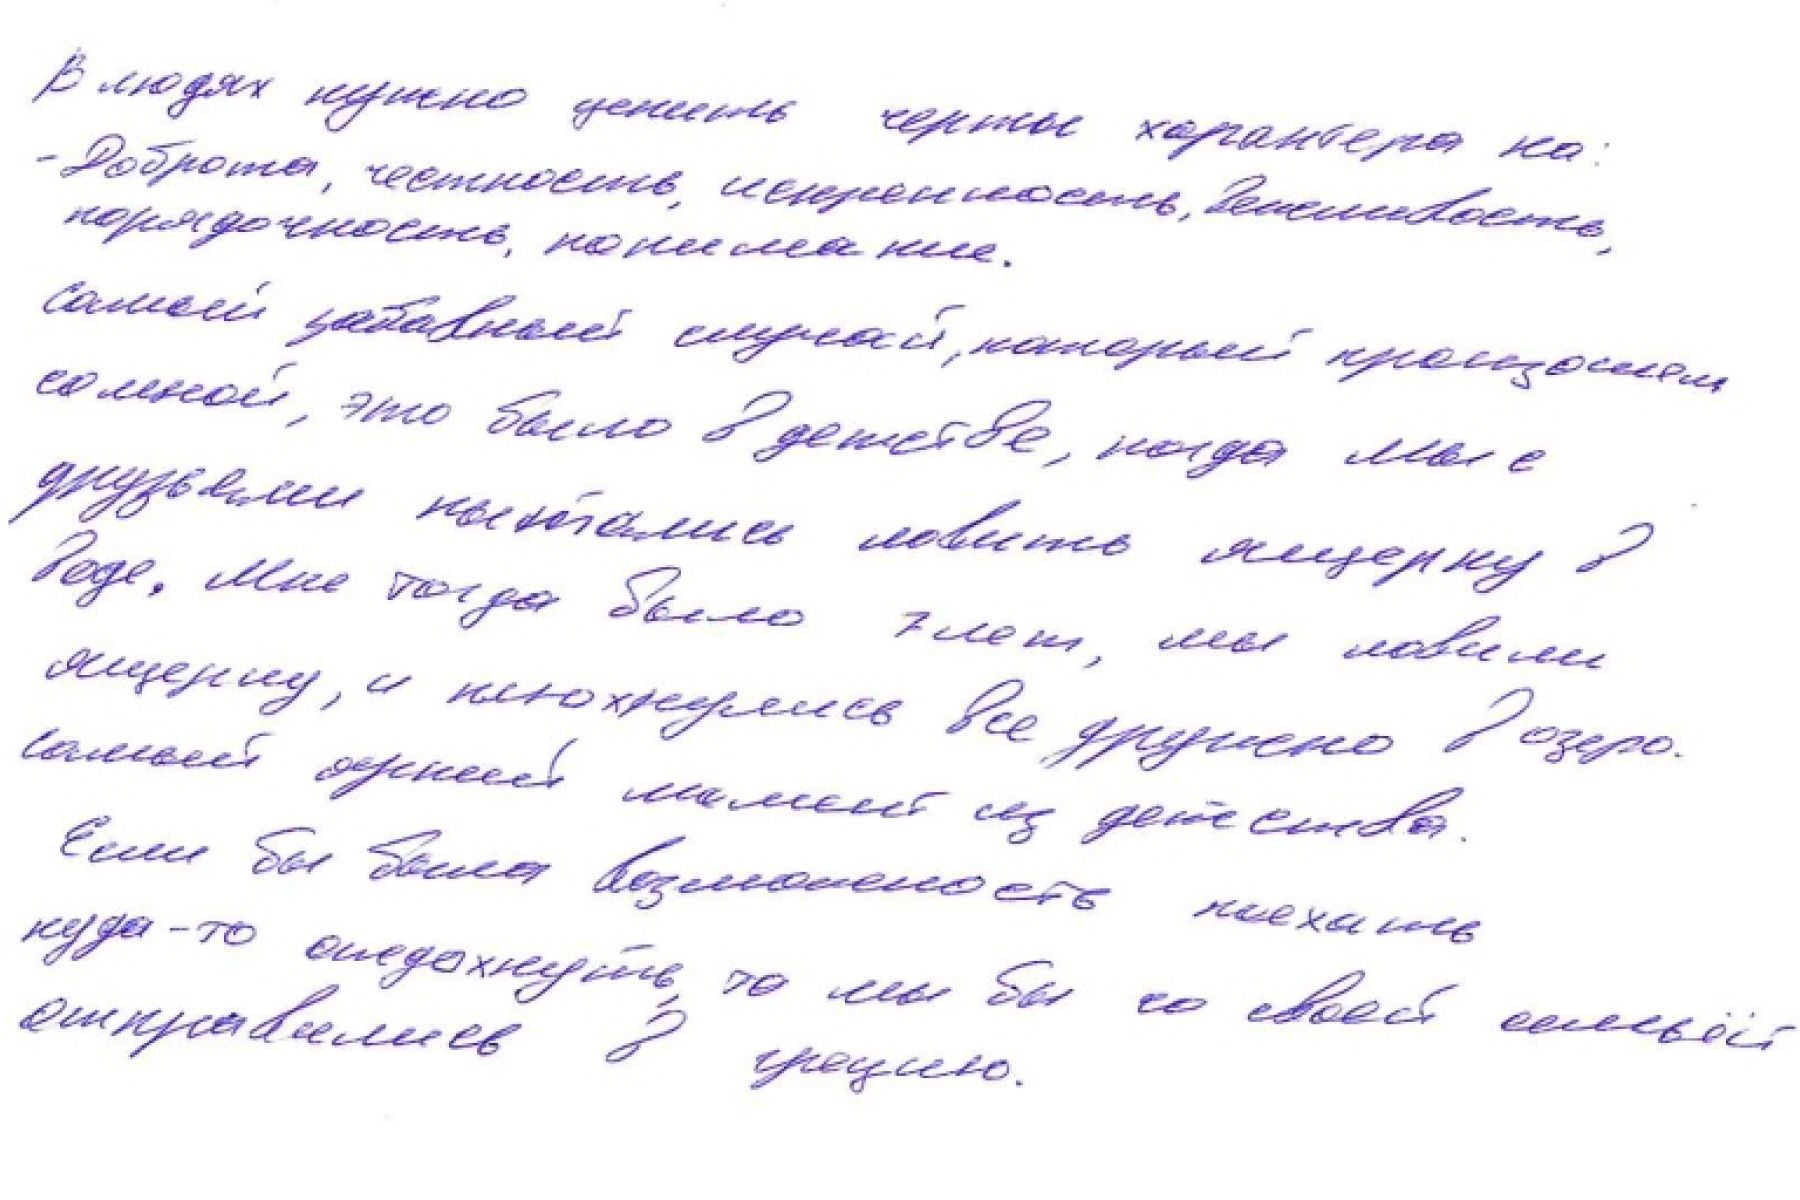 В людях нужно ценить черты характера на:
- Доброта, честность, искренность, вежливость,
порядочность, понимание.
Самый забавный случай, который произошёл
сомной, это было в детстве, когда мы с
друзьями пытались ловить ящерку в
воде. Мне тогда было 7 лет, мы ловили
ящерку, и плюхнулись все дружно в озеро.
Самый яркий момент из детства.
Если бы была возможность поехать
куда-то отдохнуть, то мы бы со своей семьёй
отправились в грецию.